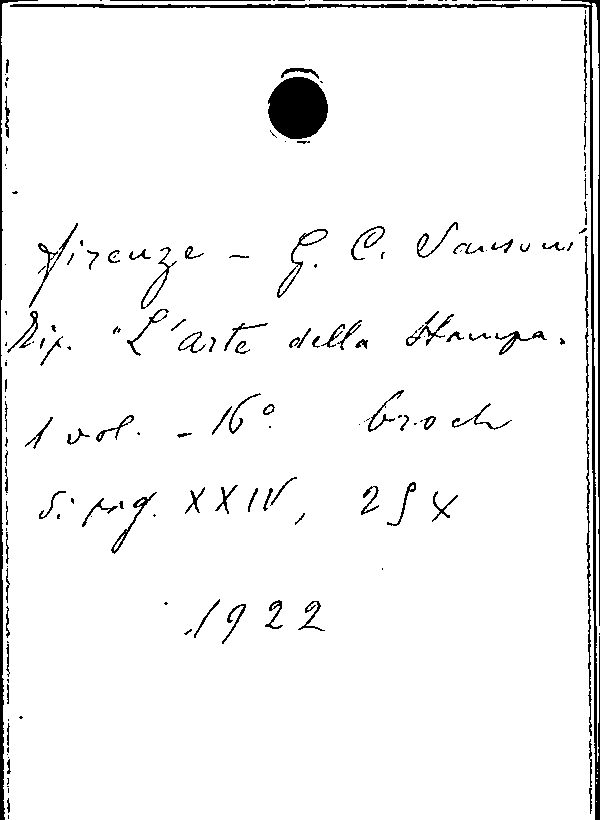 Firenze - G. C. Sansoni
Tip. "L'arte della Stampa.
1 vol. - 16° broch
di pag. XXIV, 25
1922